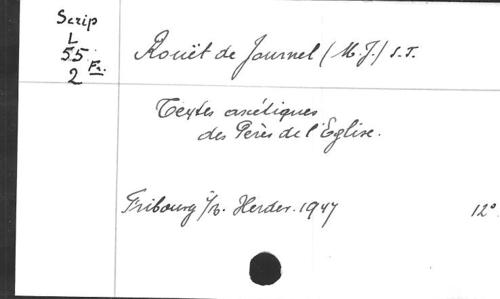 Scrip
L
55
2 Fr.
Rouët de Journel (M. J.) S. J.
Textes ascétiques
des Pères de l'Eglise.
Fribourg i/B. Herder. 1947
12°